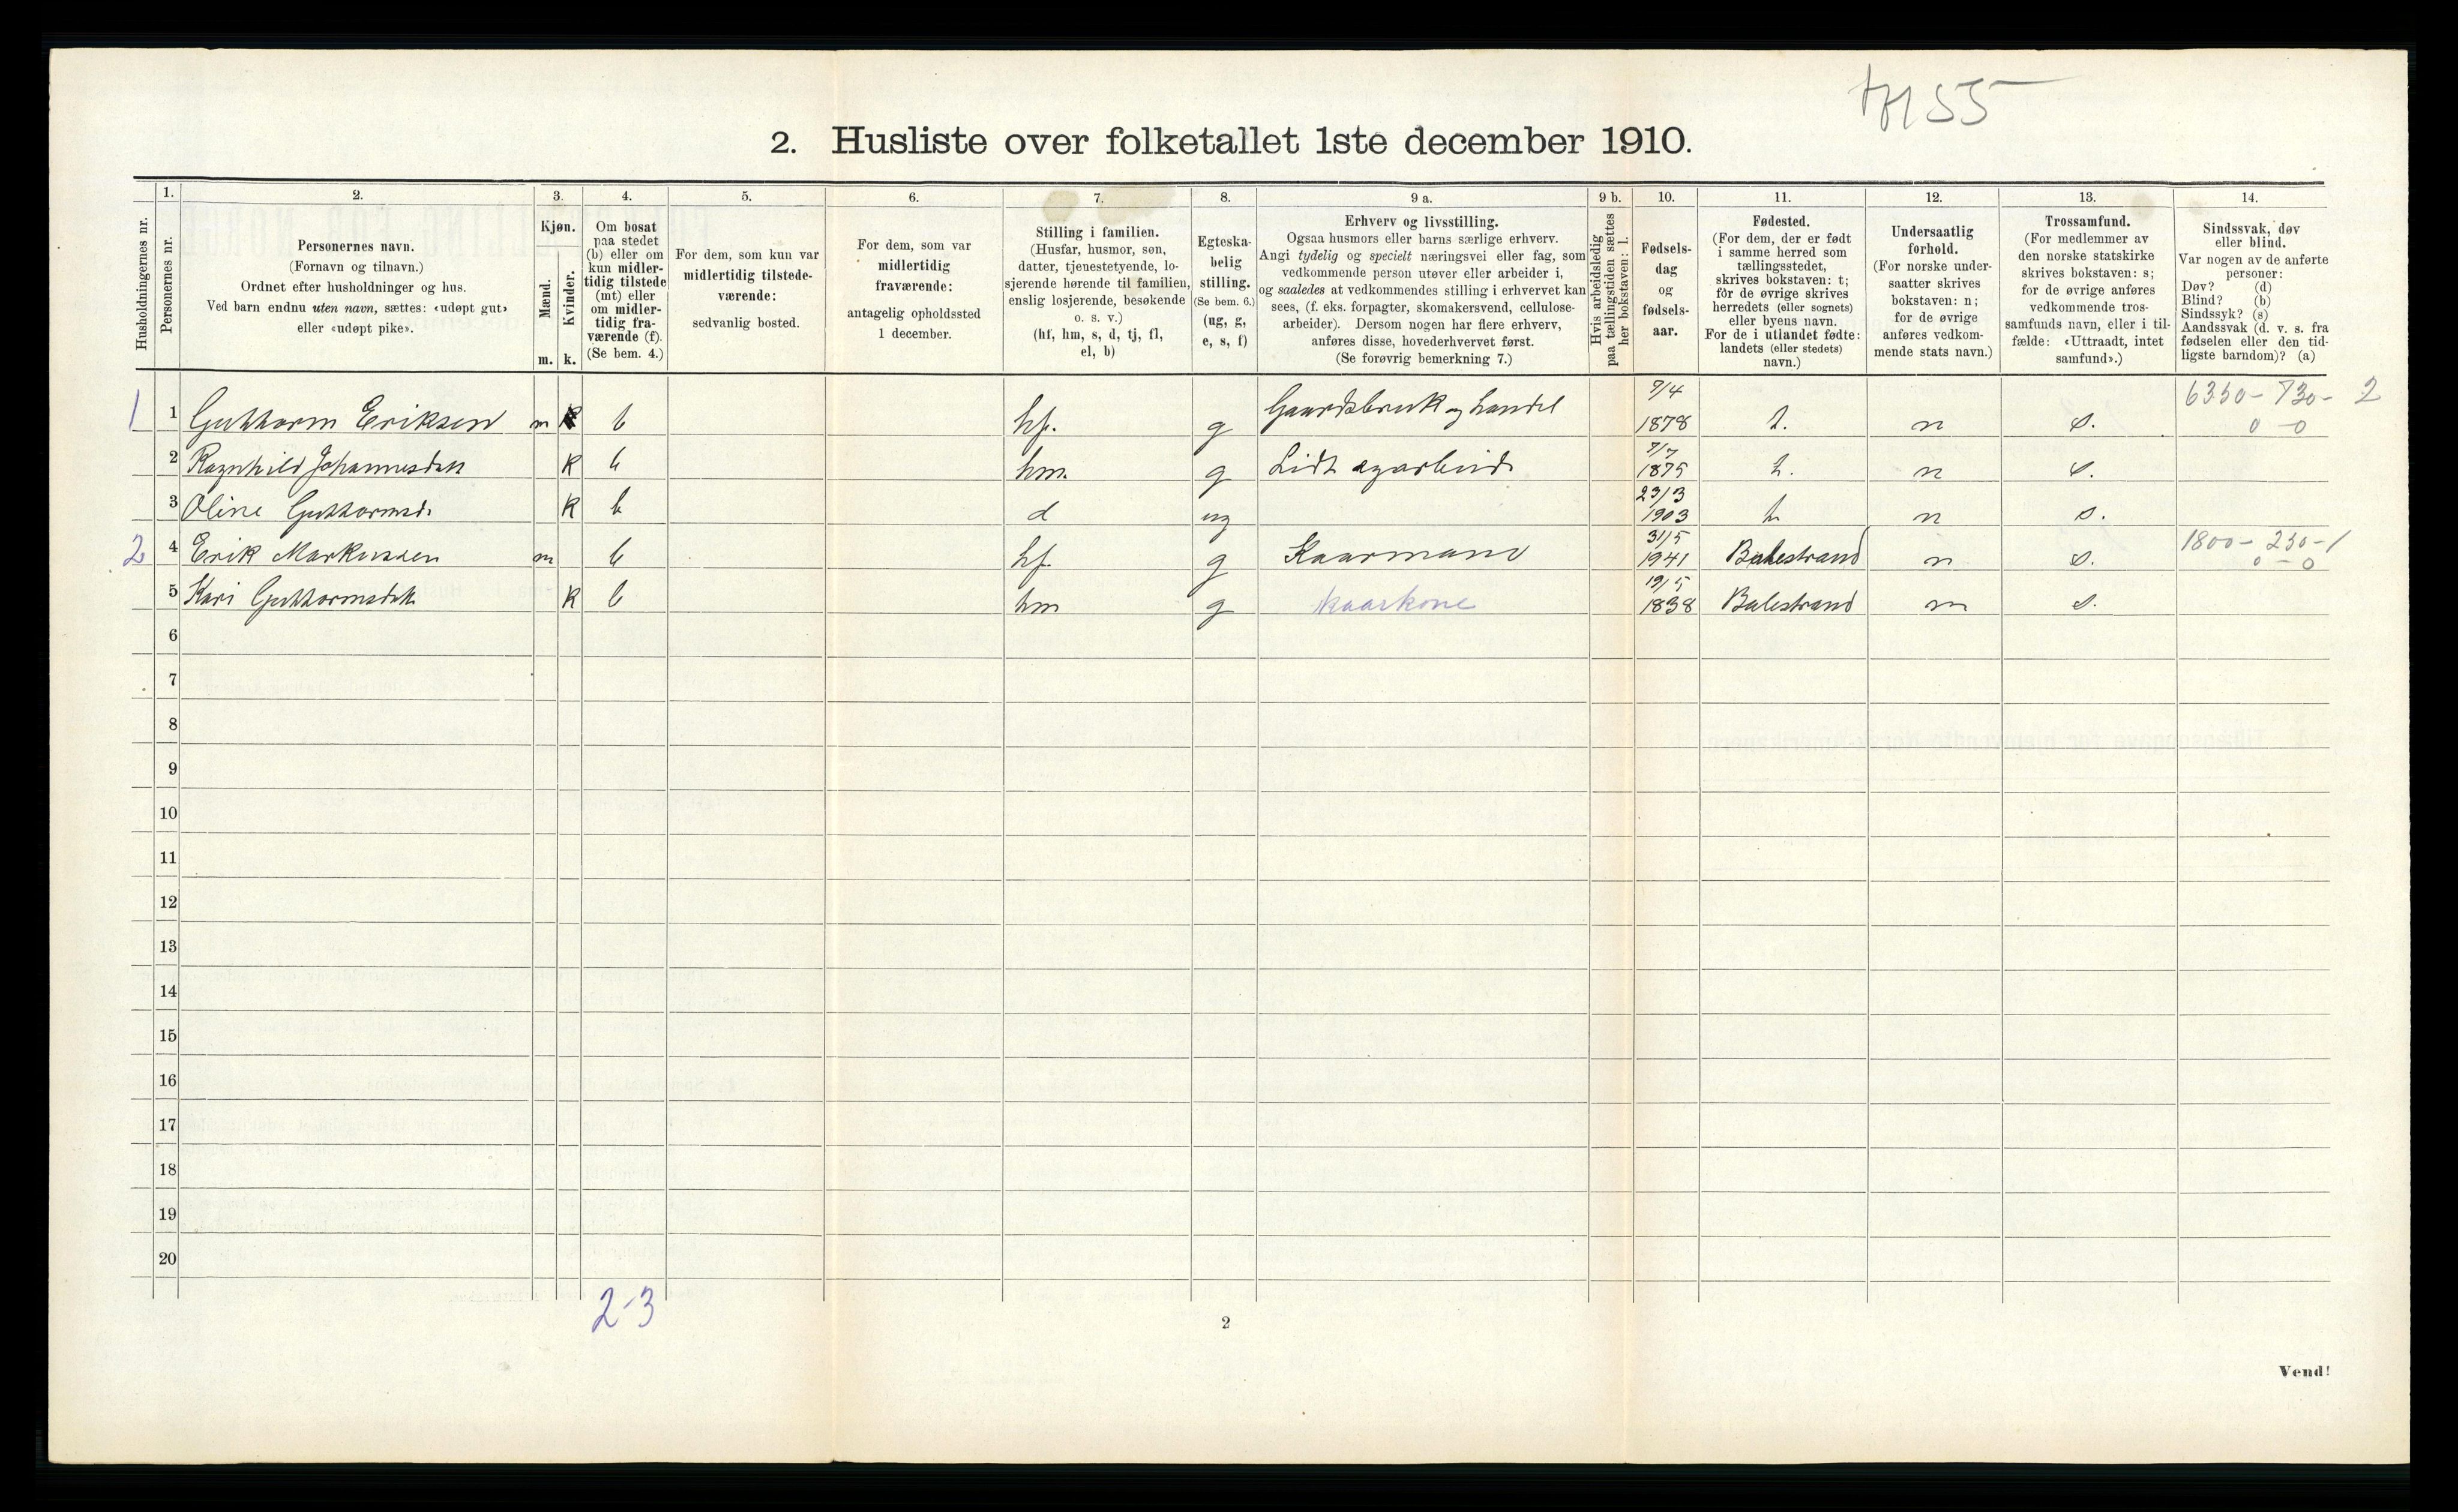 HH 55
2. Husliste over folketallet 1ste december 1910.
Husholdningernes nr.
1.
Personernes nr.
2.
Personernes navn.
(Fornavn og tilnavn.)
Ordnet efter husholdninger og hus.
Ved barn endnu uten navn, sættes: «udøpt gut»
eller «udøpt pike».
3.
Kjøn.
Mænd.
Kvinder.
m. k.
4.
Om bosat
paa stedet
(b) eller om
kun midler-
tidig tilstede
(mt) eller
om midler-
tidig fra-
værende (f).
(Se bem. 4.)
5.
For dem, som kun var
midlertidig tilstede-
værende:
sedvanlig bosted.
6.
For dem, som var
midlertidig
fraværende:
antagelig opholdssted
1 december.
7.
Stilling i familien.
(Husfar, husmor, søn,
datter, tjenestetyende, lo-
sjerende hørende til familien,
enslig losjerende, besøkende
o. s. v.)
(hf, hm, s, d, tj, fl,
el, b)
8.
Egteska-
belig
stilling.
(Se bem. 6.)
(ug, g,
e, s, f)
9 a.
Erhverv og livsstilling.
Ogsaa husmors eller barns særlige erhverv.
Angi tydelig og specielt næringsvei eller fag, som
vedkommende person utøver eller arbeider i,
og saaledes at vedkommendes stilling i erhvervet kan
sees, (f. eks. forpagter, skomakersvend, cellulose-
arbeider). Dersom nogen har flere erhverv,
anføres disse, hovederhvervet først.
(Se forøvrig bemerkning 7.)
9 b.
Hvis arbeidsledig
paa tællingstiden sættes
her bokstaven: l.
10.
Fødsels-
dag
og
fødsels-
aar.
11.
Fødested.
(For dem, der er født
i samme herred som
tællingsstedet,
skrives bokstaven: t;
for de øvrige skrives
herredets (eller sognets)
eller byens navn.
For de i utlandet fødte:
landets (eller stedets)
navn.)
12.
Undersaatlig
forhold.
(For norske under-
saatter skrives
bokstaven: n;
for de øvrige
anføres vedkom-
mende stats navn.)
13.
Trossamfund.
(For medlemmer av
den norske statskirke
skrives bokstaven: s;
for de øvrige anføres
vedkommende tros-
samfunds navn, eller i til-
fælde: «Uttraadt, intet
samfund».)
14.
Sindssvak, døv
eller blind.
Var nogen av de anførte
personer:
Døv? (d)
Blind? (b)
Sindssyk? (s)
Aandssvak (d. v. s. fra
fødselen eller den tid-
ligste barndom)? (a)
1 1 Guttorm Eriksen m b hf. g Gaardsbruk og handel 9/4 1878 t. n s. 6350 - 730 - 2
0 - 0
2 Ragnhild Johannesdatt k b hm. g Lidt agarbeid 7/7 1875 t. n s.
3 Oline Guttormsd. k b d ug 23/3 1903 t n s.
2 4 Erik Markussen m b hf. g Kaarmand 31/5 1941 Balestrand n s. 1800 - 250 - 1
0 - 0
5 Kari Guttormsdatt k b hm g Kaarkone 19/5 1838 Balestrand n s.
6
7
8
9
10
11
12
13
14
15
16
17
18
19
20
2-3
2
Vend!